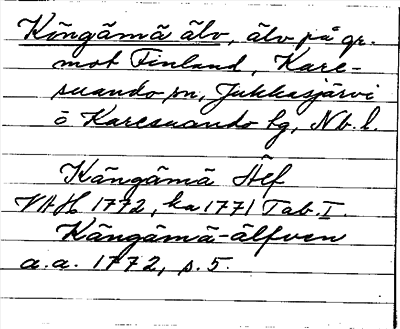 Köngämä älv, älv på gr.
mot Finland, Kare-
suando sn, Jukkasjärvi
o Karesuando tg, Nb. l.
Kängämä Älf
VAH 1772, ka 1771 Tab. I.
Kängämä-älfven
a.a. 1772, s. 5.